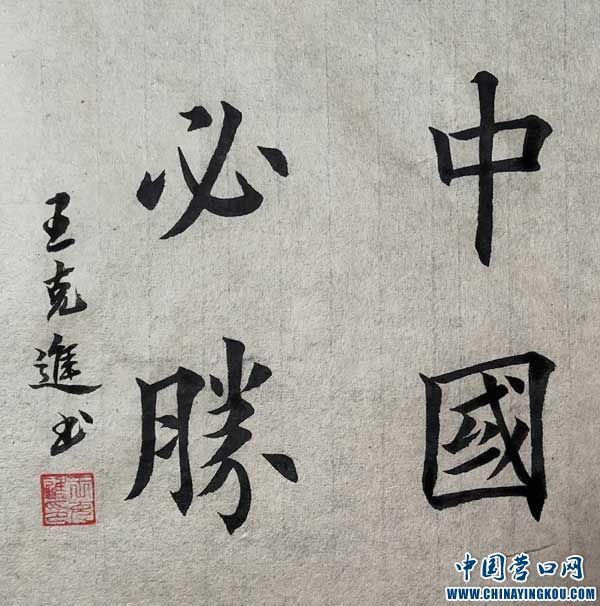 中國
必勝
王克進书
中国营口网
WWW.CHINAYINGKOU.COM